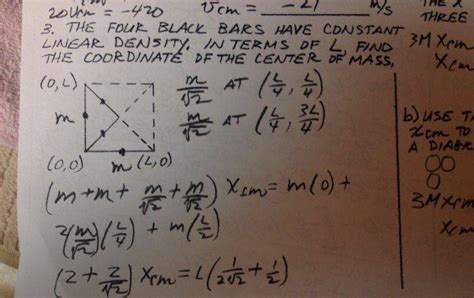 20Vcm = -420 Vcm = -21 m/s
3. THE FOUR BLACK BARS HAVE CONSTANT
LINEAR DENSITY. IN TERMS OF L, FIND
THE COORDINATE OF THE CENTER OF MASS.
(0, L)
m/√2 AT (L/4, L/4)
m
m/√2 AT (L/4, 3L/4)
(0,0) m (L,0)
(m+m+ m/√2 + m/√2) Xcm = m(0) +
2(m/√2)(L/4) + m(L/2)
(2 + 2/√2) Xcm = L(1/2√2 + 1/2)
THREE
3M Xcm
Xcm
b) USE
Xcm TO
A DIAGR
3M Xcm
Xcm